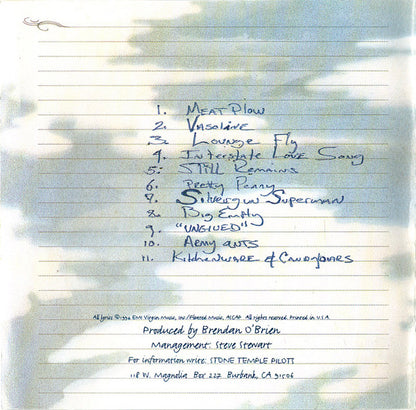 1. MEAT PLOW
2. VASOLINE
3. LOUNGE FLY
4. INTERSTATE LOVE SONG
5. STILL REMAINS
6. PRETTY PENNY
7. SILVERGUN SUPERMAN
8. BIG EMPTY
9. "UNGLUED"
10. ARMY ANTS
11. KITCHENWARE & CANDYBARS
All lyrics ©1994 EMI Virgin Music, Inc./Floated Music, ASCAP All rights reserved. Printed in U.S.A.
Produced by Brendan O'Brien
Management: Steve Stewart
For information write: STONE TEMPLE PILOTS
118 W. Magnolia Box 227 Burbank, CA 91506